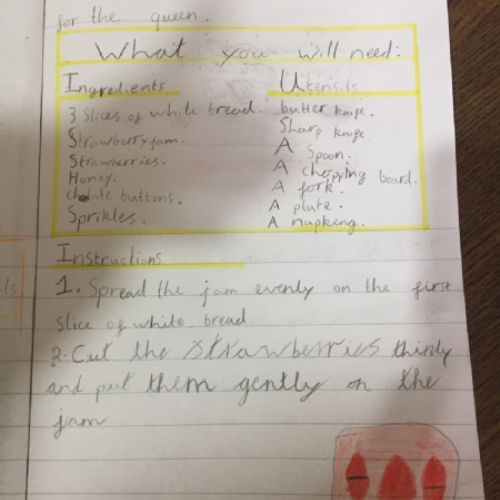 for the queen.
What you will need:
Ingredients
3 Slices of white bread.
Strawberry jam.
Strawberries.
Honey.
buttons.
Sprikles.
Utensils
butter knife.
Sharp knife
A Spoon.
A chopping board.
A fork.
A plate.
A napking.
Instructions
1. Spread the jam evenly on the first
slice of white bread.
2. Cut the strawberries thinly
and put them gently on the
jam